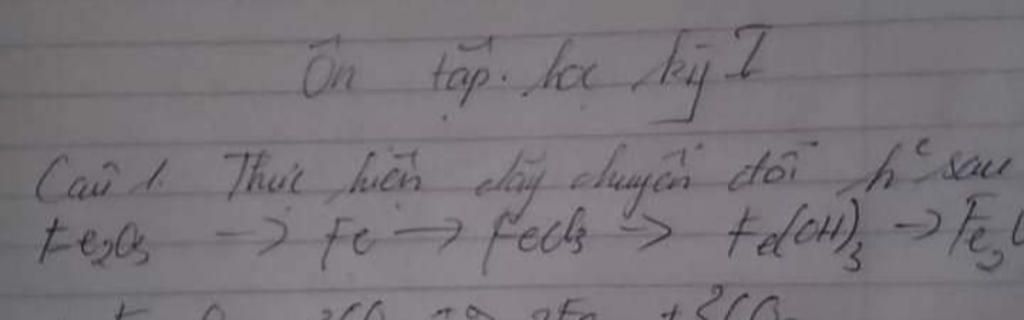 Ôn tập học kỳ I
Câu 1. Thực hiện dãy chuyển đổi h^c sau
Fe2O3 -> Fe -> FeCl3 -> Fe(OH)3 -> Fe2
3CO 2Fe + 3CO2